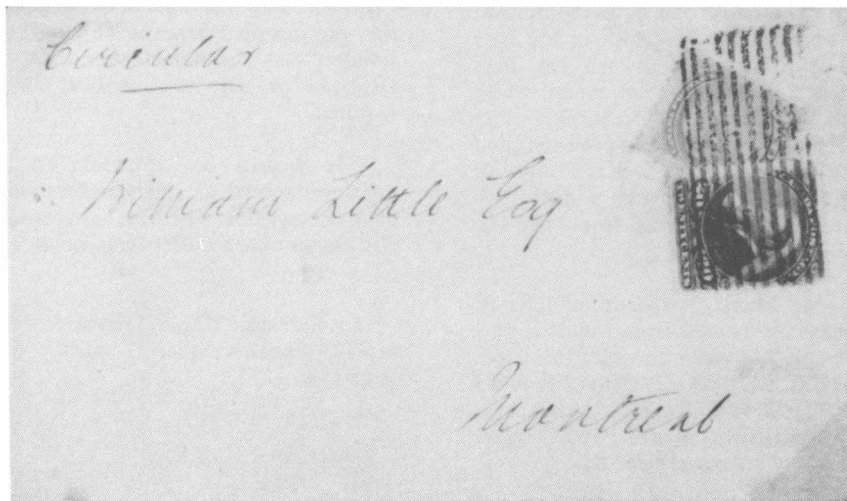 Circular
William Little Esq
Montreal